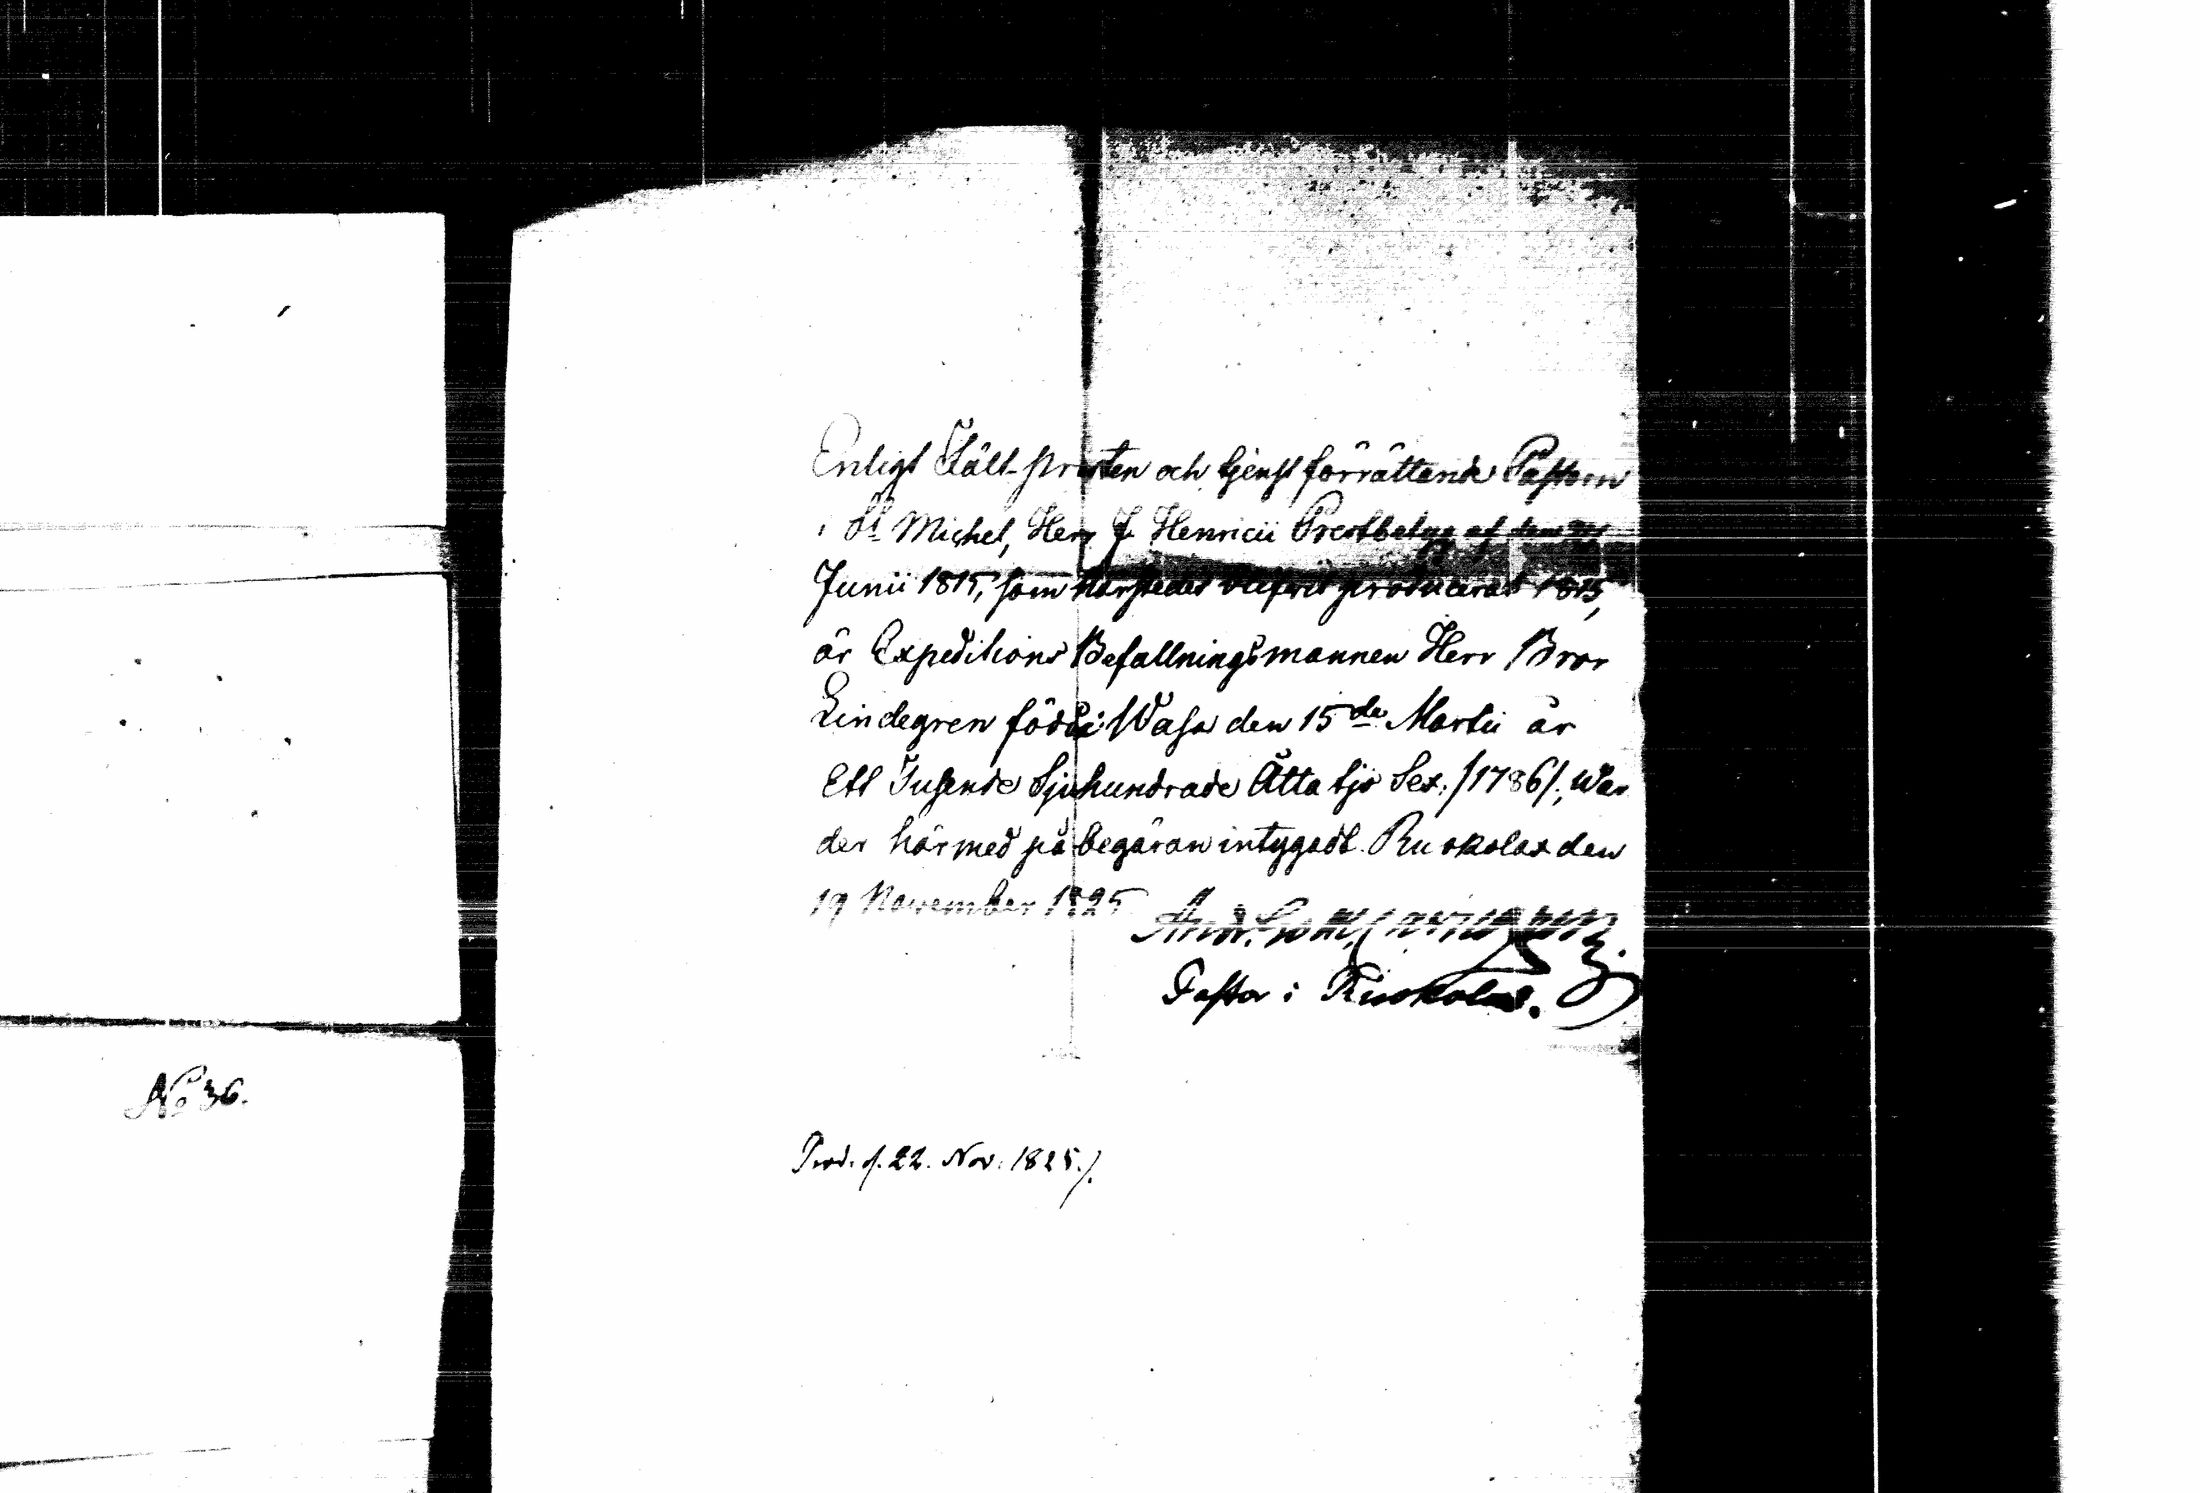 Enligt Fält-prosten och tjenst förrättande Pastorn
i St Michel, Herr J. Henricii Prestbetyg af den
Junii 1815, som härstädes blifvit producerat 1815,
är Expeditions Befallningsmannen Herr Bror
Lindegren född i Wasa den 15de Martii år
Ett Tusende Sjuhundrade Åtta tjo Sex /1786/, War
der härmed på begäran intygadt. Ruokolax den
19 November 1825
And. Joh.
Pastor i Ruokolax.
Prod. d. 22. Nov: 1825./.
No 36.